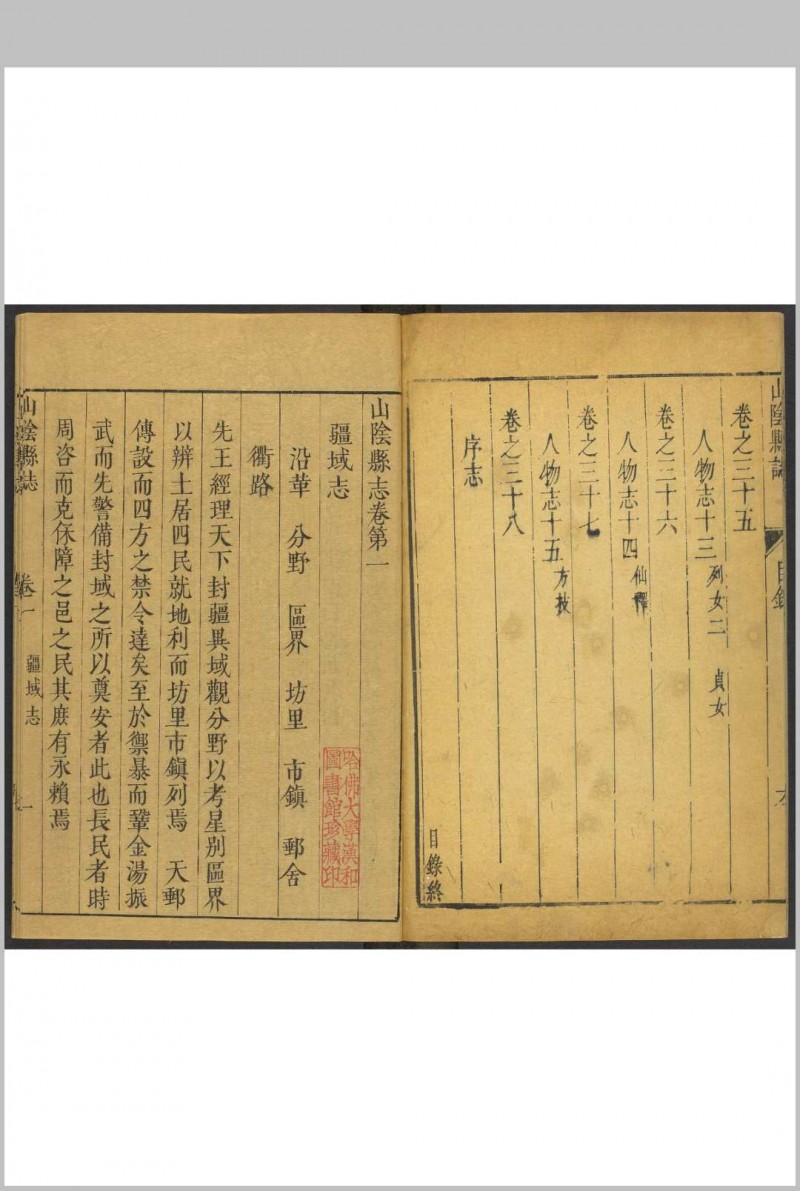 山陰縣誌
目錄
卷之三十五
人物志十三 列女二 貞女
卷之三十六
人物志十四 仙釋
卷之三十七
人物志十五 方技
卷之三十八
序志
目錄終
山陰縣志卷第一
疆域志
沿革 分野 區界 坊里 市鎮 郵舍
衢路
先王經理天下封疆異域觀分野以考星別區界
以辨土居四民就地利而坊里市鎮列焉 天郵
傳設而四方之禁令達矣至於禦暴而鞏金湯振
武而先警備封域之所以奠安者此也長民者時
周咨而克保障之邑之民其庶有永賴焉
山陰縣志
卷一 疆域志 一
哈佛大學漢和
圖書館珍藏印